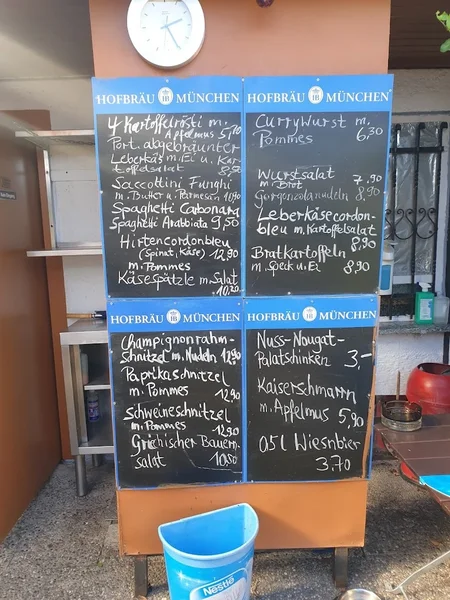 HOFBRÄU HB MÜNCHEN
4 Kartoffelrösti m.
Apfelmus 5,10
Port. abgebräunter
Leberkäs m. Ei u. Kar-
toffelsalat 8,50
Saccottini Funghi
m. Butter u. Parmesan 11,90
Spaghetti Carbonara
Spaghetti Arabbiata 9,50
Hirtencordonbleu
(Spinat, Käse) 12,90
m. Pommes
Käsespätzle m. Salat
10,20
HOFBRÄU HB MÜNCHEN
Currywurst m.
Pommes 6,30
Wurstsalat
m. Brot 7.90
Gorgonzolanudeln 8,90
Leberkäsecordon-
bleu m. Kartoffelsalat
8,90
Bratkartoffeln
m. Speck u. Ei 8,90
HOFBRÄU HB MÜNCHEN
Champignonrahm-
schnitzel m. Nudeln 12,90
Paprikaschnitzel
m. Pommes 12,90
Schweineschnitzel
m. Pommes 12,90
Grichischer Bauern-
salat 10,50
HOFBRÄU HB MÜNCHEN
Nuss-Nougat-
Palatschinken 3,-
Kaiserschmarrn
m. Apfelmus 5,90
0,5l Wiesnbier
3,70
Nestlé